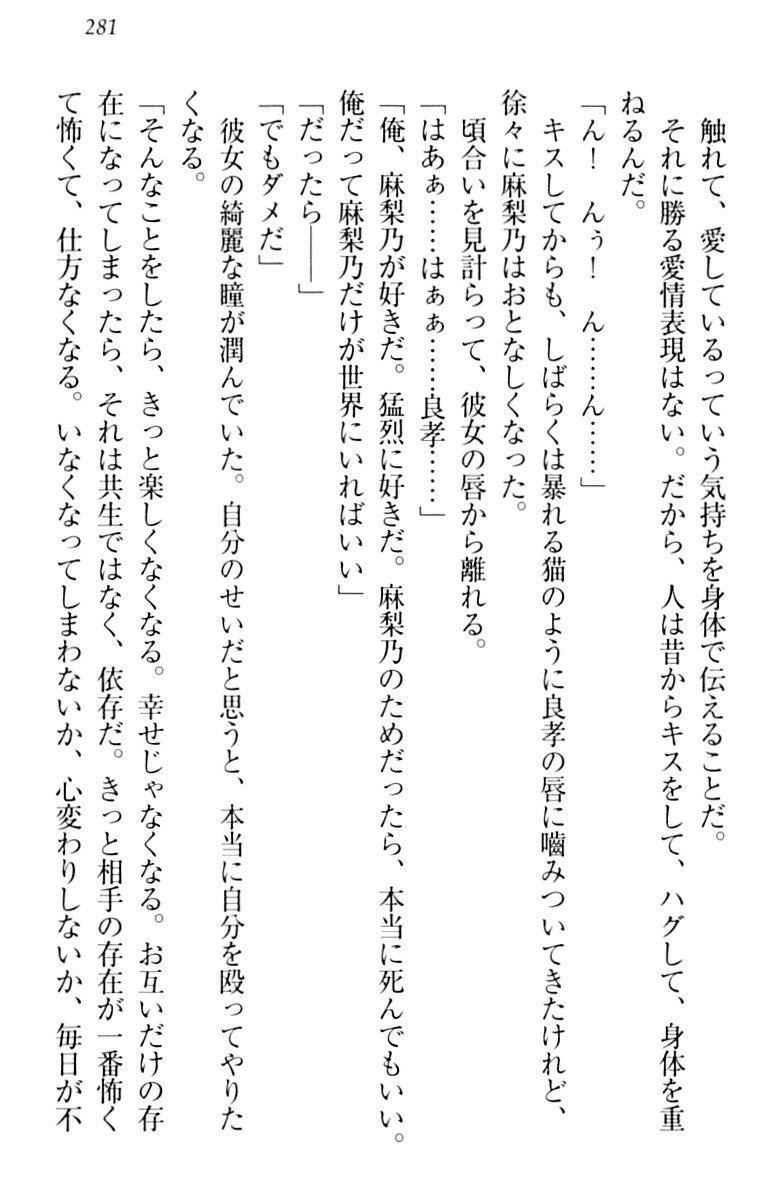 281
触れて、愛しているっていう気持ちを身体で伝えることだ。
それに勝る愛情表現はない。だから、人は昔からキスをして、ハグして、身体を重
ねるんだ。
「ん！　んぅ！　ん……ん……」
キスしてからも、しばらくは暴れる猫のように良孝の唇に嚙みついてきたけれど、
徐々に麻梨乃はおとなしくなった。
頃合いを見計らって、彼女の唇から離れる。
「はあぁ……はぁぁ……良孝……」
「俺、麻梨乃が好きだ。猛烈に好きだ。麻梨乃のためだったら、本当に死んでもいい。
俺だって麻梨乃だけが世界にいればいい」
「だったら――」
「でもダメだ」
彼女の綺麗な瞳が潤んでいた。自分のせいだと思うと、本当に自分を殴ってやりた
くなる。
「そんなことをしたら、きっと楽しくなくなる。幸せじゃなくなる。お互いだけの存
在になってしまったら、それは共生ではなく、依存だ。きっと相手の存在が一番怖く
て怖くて、仕方なくなる。いなくなってしまわないか、心変わりしないか、毎日が不